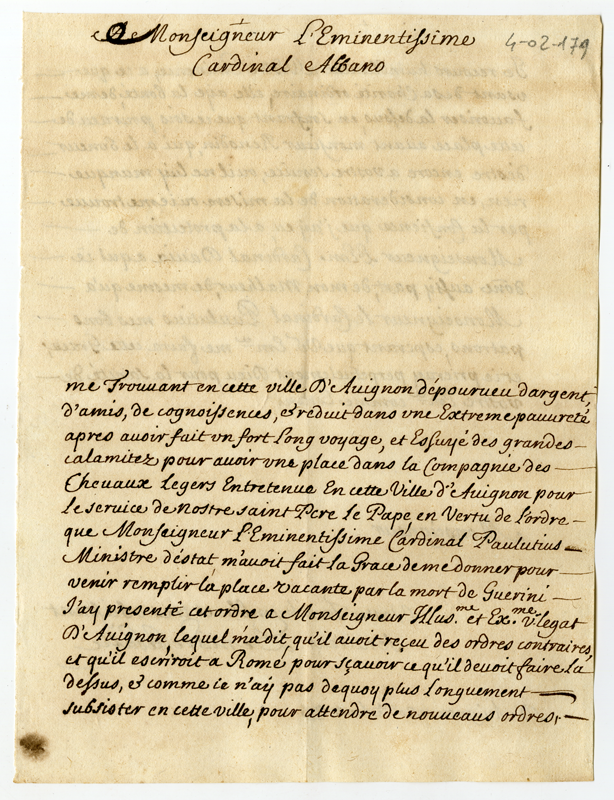 A Monseigneur L'Eminentissime
4-02-179
Cardinal Albano
me Trouvant en cette ville D'Avignon dépourueu d'argent,
d'amis, de cognoissences, & réduit dans vne Extreme pauureté
apres auoir fait vn fort Long voyage, et Essuyé des grandes
calamitez pour auoir vne place dans la Compagnie des
Chevaux Legers Entretenue En cette Ville d'Auignon pour
le service de Nostre saint Pere Le Pape en Vertu de L'ordre
que Monseigneur L'Eminentissime Cardinal Paulutius
Ministre d'éstat m'auoit fait la Grace de me donner pour
venir remplir la place vacante par la mort de Guerini
J'ay presenté cet ordre a Monseigneur Illus.me et Ex.me vlegat
D'Avignon, lequel m'a dit qu'il avoit reçeu des ordres contraires,
et qu'il escriroit a Rome pour sçavoir ce qu'il devoit faire la
dessus, & comme ie n'aÿ pas dequoy plus Longuement
subsister en cette ville, pour attendre de nouveaus ordres,